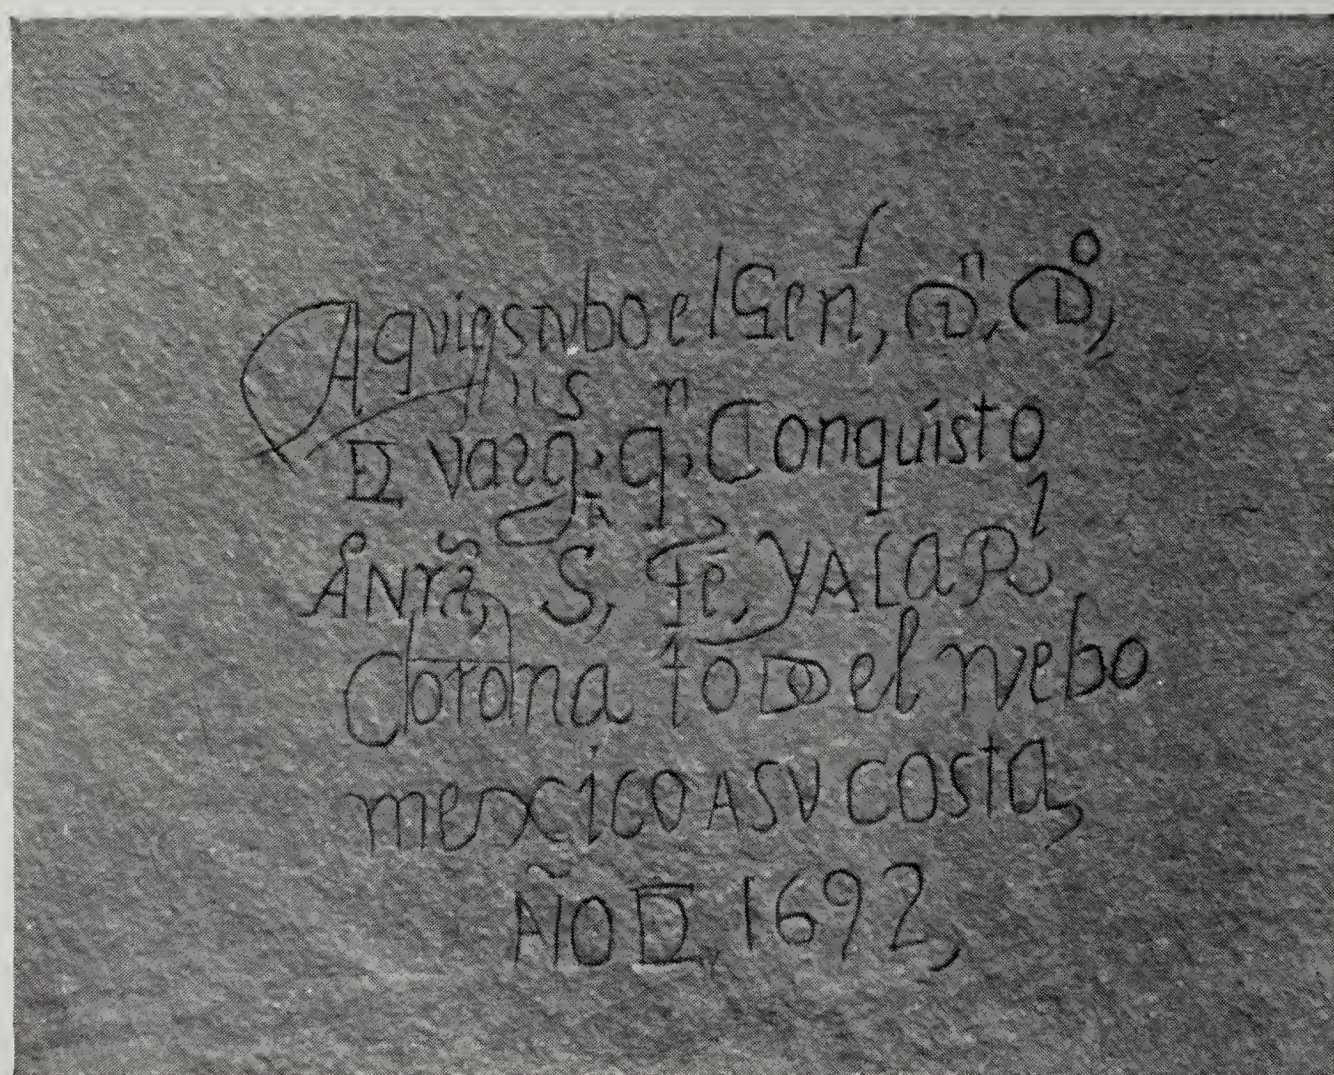 Aqui estubo el Genˡ, Dⁿ, Dº,
DE vargˢ, qⁿ, Conquisto
Å Nrã, Sᴬ, Fè, Y A La Rˡ
Corona toDo el nvebo
mexico A SV costa,
AÑO DE, 1692,